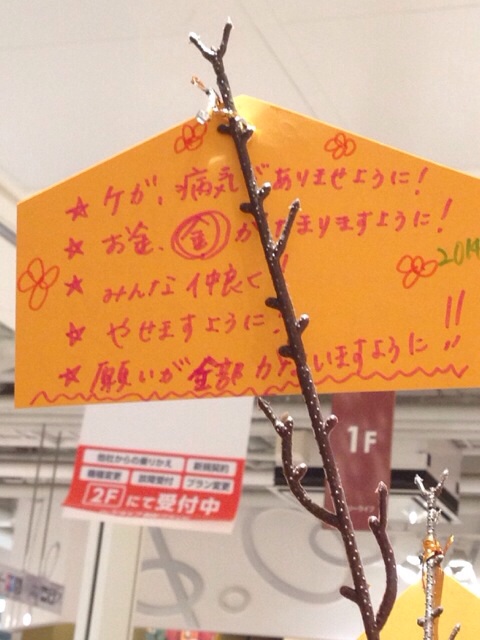 ☆ケガ、病気がありませように!
☆お金、㊎がたまりますように!
2014
☆みんな仲良く!
☆やせますように!
☆願いが全部かないますように!!
1F
他社からの乗りかえ 新規契約
機種変更 故障受付 プラン変更
2Fにて受付中